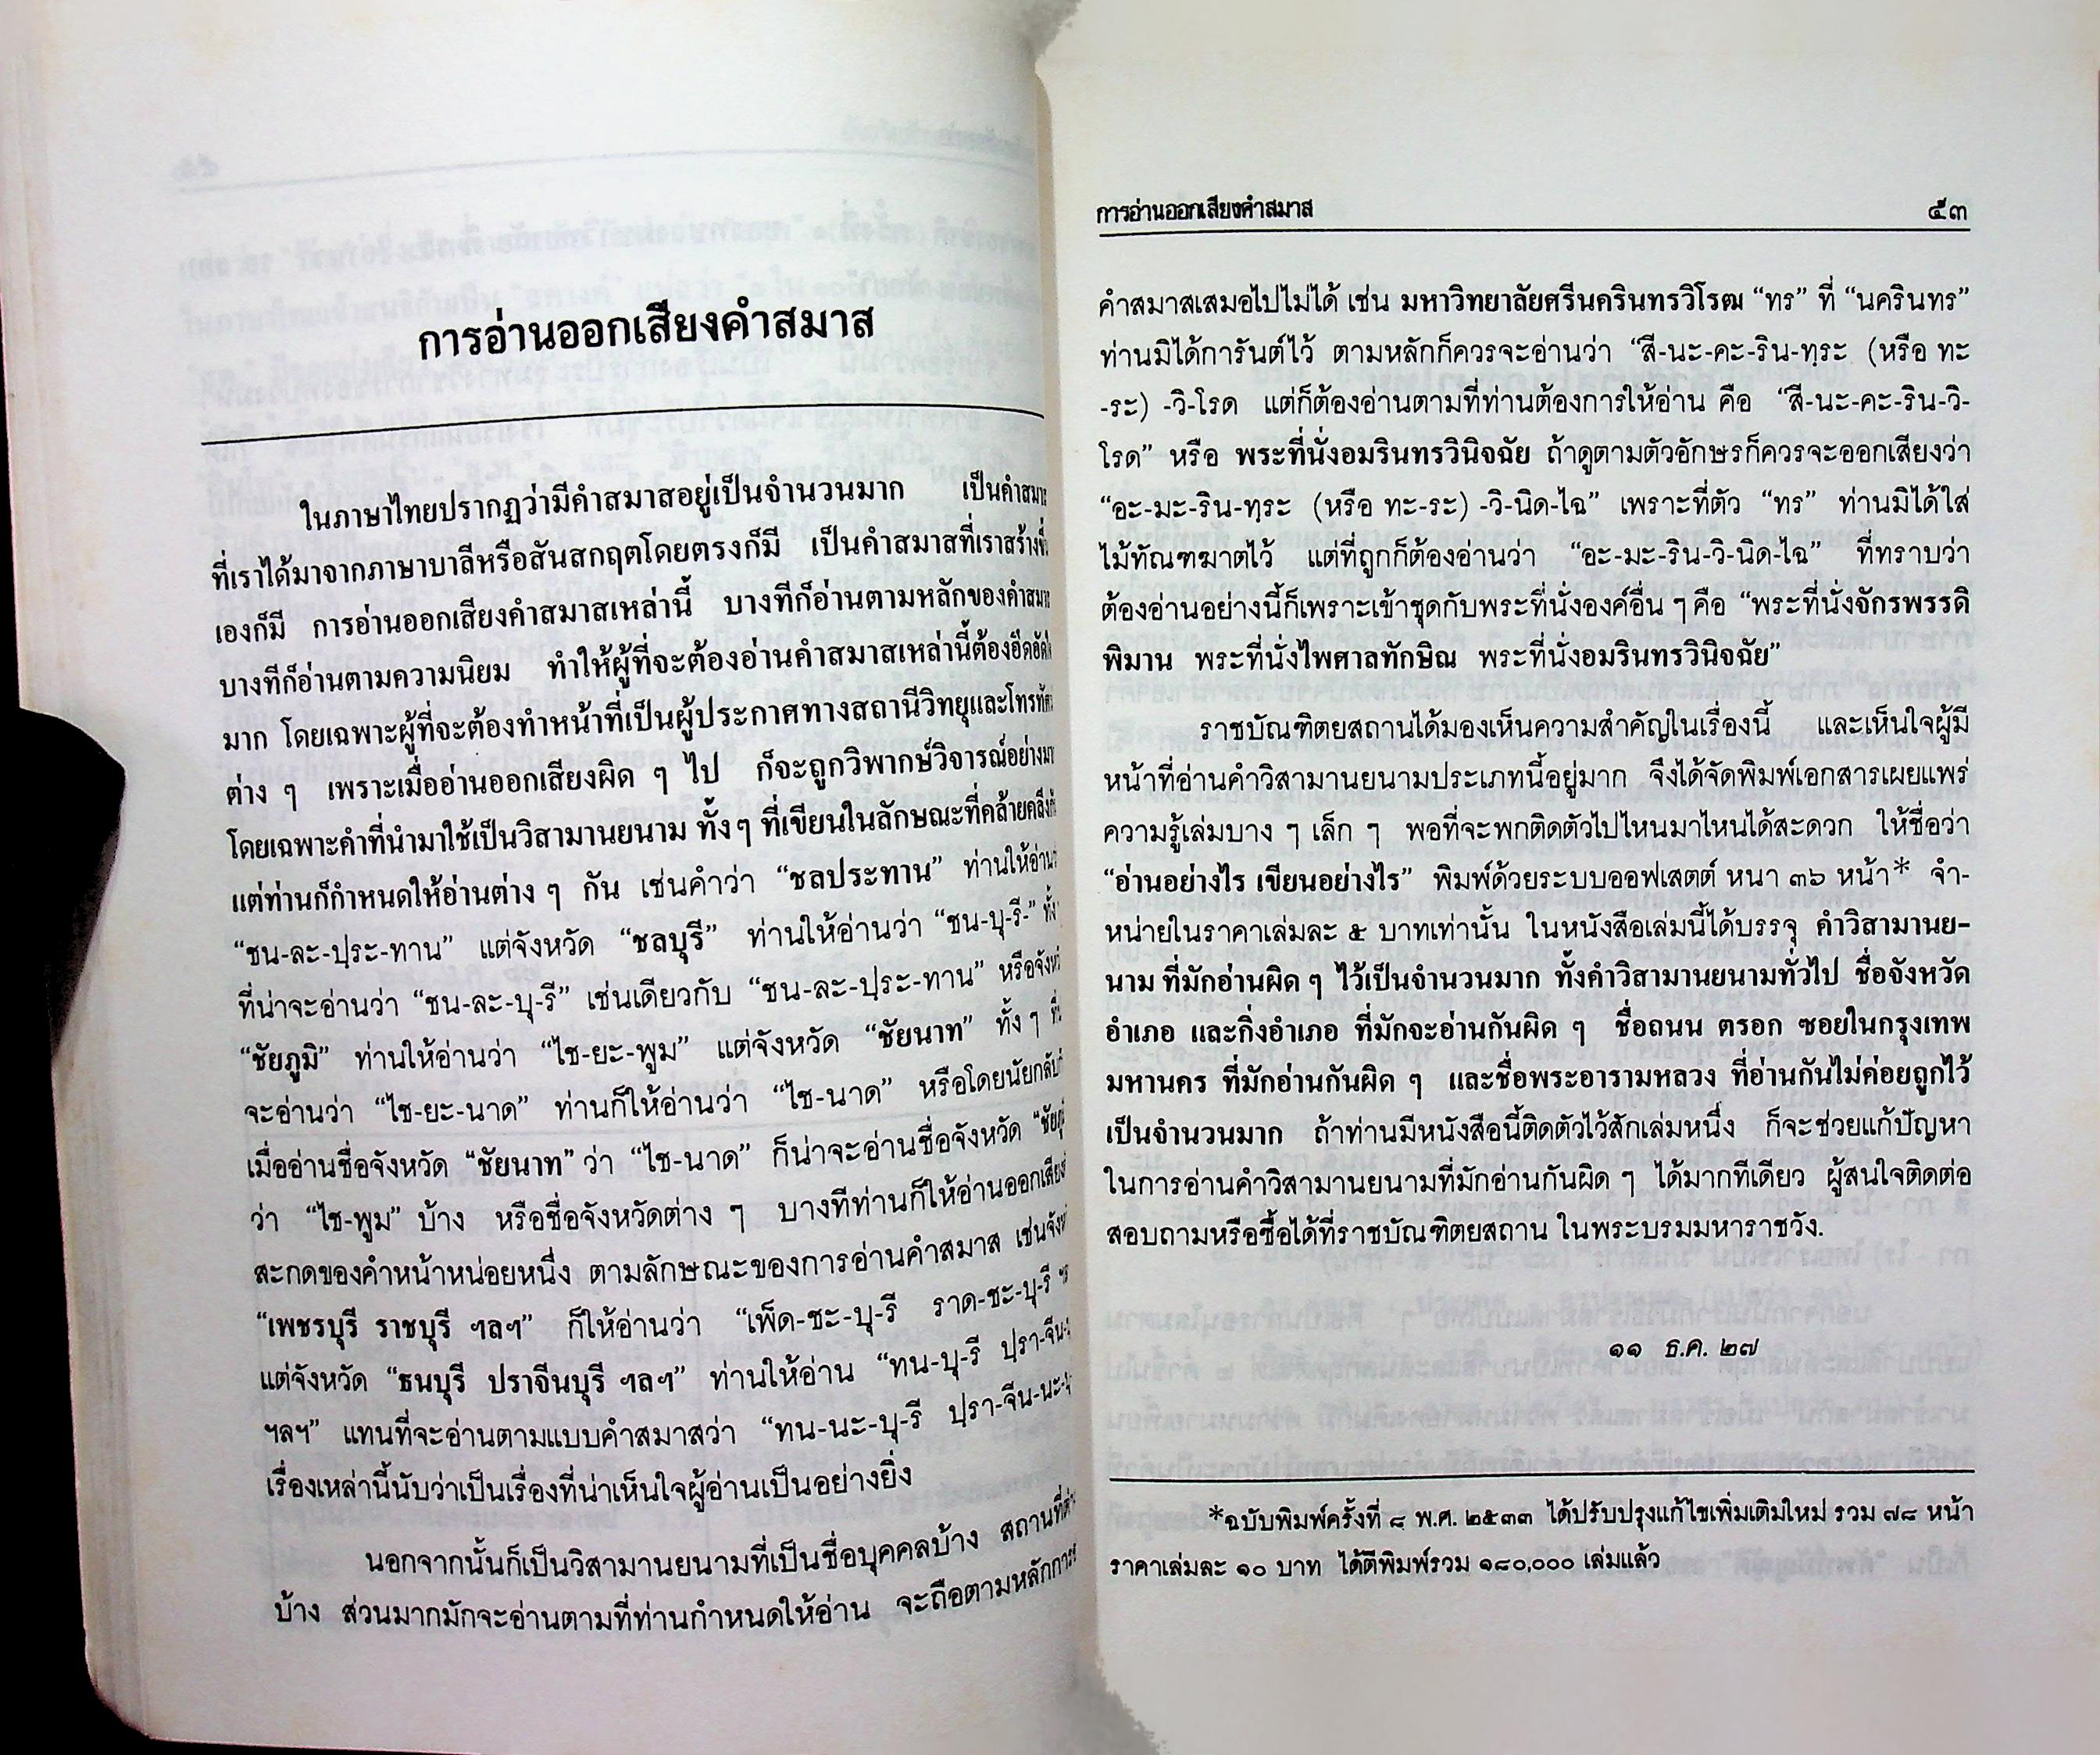 การอ่านออกเสียงคำสมาส
ในภาษาไทยปรากฏว่ามีคำสมาสอยู่เป็นจำนวนมาก เป็นคำสมาส
ที่เราได้มาจากภาษาบาลีหรือสันสกฤตโดยตรงก็มี เป็นคำสมาสที่เราสร้างขึ้น
เองก็มี การอ่านออกเสียงคำสมาสเหล่านี้ บางทีก็อ่านตามหลักของคำสมาส
บางทีก็อ่านตามความนิยม ทำให้ผู้ที่จะต้องอ่านคำสมาสเหล่านี้ต้องอึดอัดใจ
มาก โดยเฉพาะผู้ที่จะต้องทำหน้าที่เป็นผู้ประกาศทางสถานีวิทยุและโทรทัศน์
ต่าง ๆ เพราะเมื่ออ่านออกเสียงผิด ๆ ไป ก็จะถูกวิพากษ์วิจารณ์อย่างมาก
โดยเฉพาะคำที่นำมาใช้เป็นวิสามานยนาม ทั้ง ๆ ที่เขียนในลักษณะที่คล้ายคลึงกัน
แต่ท่านก็กำหนดให้อ่านต่าง ๆ กัน เช่นคำว่า “ชลประทาน” ท่านให้อ่านว่า
“ชน-ละ-ปฺระ-ทาน” แต่จังหวัด “ชลบุรี” ท่านให้อ่านว่า “ชน-บุ-รี-” ทั้ง ๆ
ที่น่าจะอ่านว่า “ชน-ละ-บุ-รี” เช่นเดียวกับ “ชน-ละ-ปฺระ-ทาน” หรือจังหวัด
“ชัยภูมิ” ท่านให้อ่านว่า “ไช-ยะ-พูม” แต่จังหวัด “ชัยนาท” ทั้ง ๆ ที่
จะอ่านว่า “ไช-ยะ-นาด” ท่านก็ให้อ่านว่า “ไช-นาด” หรือโดยนัยกลับกัน
เมื่ออ่านชื่อจังหวัด “ชัยนาท” ว่า “ไช-นาด” ก็น่าจะอ่านชื่อจังหวัด “ชัยภูมิ
ว่า “ไช-พูม” บ้าง หรือชื่อจังหวัดต่าง ๆ บางทีท่านก็ให้อ่านออกเสียง
สะกดของคำหน้าหน่อยหนึ่ง ตามลักษณะของการอ่านคำสมาส เช่นจังหวัด
“เพชรบุรี ราชบุรี ฯลฯ” ก็ให้อ่านว่า “เพ็ด-ชะ-บุ-รี ราด-ชะ-บุ-รี ฯ
แต่จังหวัด “ธนบุรี ปราจีนบุรี ฯลฯ” ท่านให้อ่าน “ทน-บุ-รี ปฺรา-จีน-
ฯลฯ” แทนที่จะอ่านตามแบบคำสมาสว่า “ทน-นะ-บุ-รี ปฺรา-จีน-นะ-
เรื่องเหล่านี้นับว่าเป็นเรื่องที่น่าเห็นใจผู้อ่านเป็นอย่างยิ่ง
นอกจากนั้นก็เป็นวิสามานยนามที่เป็นชื่อบุคคลบ้าง สถานที่ต่าง
บ้าง ส่วนมากมักจะอ่านตามที่ท่านกำหนดให้อ่าน จะถือตามหลักการ
การอ่านออกเสียงคำสมาส ๕๓
คำสมาสเสมอไปไม่ได้ เช่น มหาวิทยาลัยศรีนครินทรวิโรฒ “ทร” ที่ “นครินทร”
ท่านมิได้การันต์ไว้ ตามหลักก็ควรจะอ่านว่า “สี-นะ-คะ-ริน-ทฺระ (หรือ ทะ
-ระ) -วิ-โรด แต่ก็ต้องอ่านตามที่ท่านต้องการให้อ่าน คือ “สี-นะ-คะ-ริน-วิ-
โรด” หรือ พระที่นั่งอมรินทรวินิจฉัย ถ้าดูตามตัวอักษรก็ควรจะออกเสียงว่า
“อะ-มะ-ริน-ทฺระ (หรือ ทะ-ระ) -วิ-นิด-ไฉ” เพราะที่ตัว “ทร” ท่านมิได้ใส่
ไม้ทัณฑฆาตไว้ แต่ที่ถูกก็ต้องอ่านว่า “อะ-มะ-ริน-วิ-นิด-ไฉ” ที่ทราบว่า
ต้องอ่านอย่างนี้ก็เพราะเข้าชุดกับพระที่นั่งองค์อื่น ๆ คือ “พระที่นั่งจักรพรรดิ
พิมาน พระที่นั่งไพศาลทักษิณ พระที่นั่งอมรินทรวินิจฉัย”
ราชบัณฑิตยสถานได้มองเห็นความสำคัญในเรื่องนี้ และเห็นใจผู้มี
หน้าที่อ่านคำวิสามานยนามประเภทนี้อยู่มาก จึงได้จัดพิมพ์เอกสารเผยแพร่
ความรู้เล่มบาง ๆ เล็ก ๆ พอที่จะพกติดตัวไปไหนมาไหนได้สะดวก ให้ชื่อว่า
“อ่านอย่างไร เขียนอย่างไร” พิมพ์ด้วยระบบออฟเสตต์ หนา ๓๖ หน้า* จำ-
หน่ายในราคาเล่มละ ๕ บาทเท่านั้น ในหนังสือเล่มนี้ได้บรรจุ คำวิสามานย-
นาม ที่มักอ่านผิด ๆ ไว้เป็นจำนวนมาก ทั้งคำวิสามานยนามทั่วไป ชื่อจังหวัด
อำเภอ และกิ่งอำเภอ ที่มักจะอ่านกันผิด ๆ ชื่อถนน ตรอก ซอยในกรุงเทพ
มหานคร ที่มักอ่านกันผิด ๆ และชื่อพระอารามหลวง ที่อ่านกันไม่ค่อยถูกไว้
เป็นจำนวนมาก ถ้าท่านมีหนังสือนี้ติดตัวไว้สักเล่มหนึ่ง ก็จะช่วยแก้ปัญหา
ในการอ่านคำวิสามานยนามที่มักอ่านกันผิด ๆ ได้มากทีเดียว ผู้สนใจติดต่อ
สอบถามหรือซื้อได้ที่ราชบัณฑิตยสถาน ในพระบรมมหาราชวัง.
๑๑ ธ.ค. ๒๗
*ฉบับพิมพ์ครั้งที่ ๘ พ.ศ. ๒๕๓๓ ได้ปรับปรุงแก้ไขเพิ่มเติมใหม่ รวม ๗๘ หน้า
ราคาเล่มละ ๑๐ บาท ได้ตีพิมพ์รวม ๑๘๐,๐๐๐ เล่มแล้ว